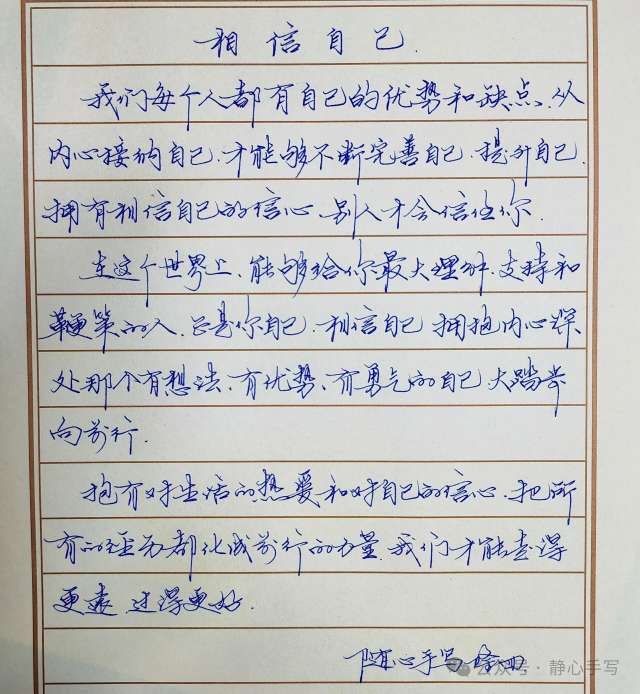 相信自己.
我们每个人都有自己的优势和缺点,从
内心接纳自己.才能够不断完善自己.提升自己.
拥有相信自己的信心.别人才会信任你.
在这个世界上.能够给你最大理解.支持和
鞭策的人.总是你自己.相信自己 拥抱内心深
处那个有想法、有优势、有勇气的自己 大踏步
向前行.
抱有对生活的热爱和对自己的信心.把所
有的经历都化成前行的力量.我们才能走得
更远 过得更好.
随心手写
公众号·静心手写